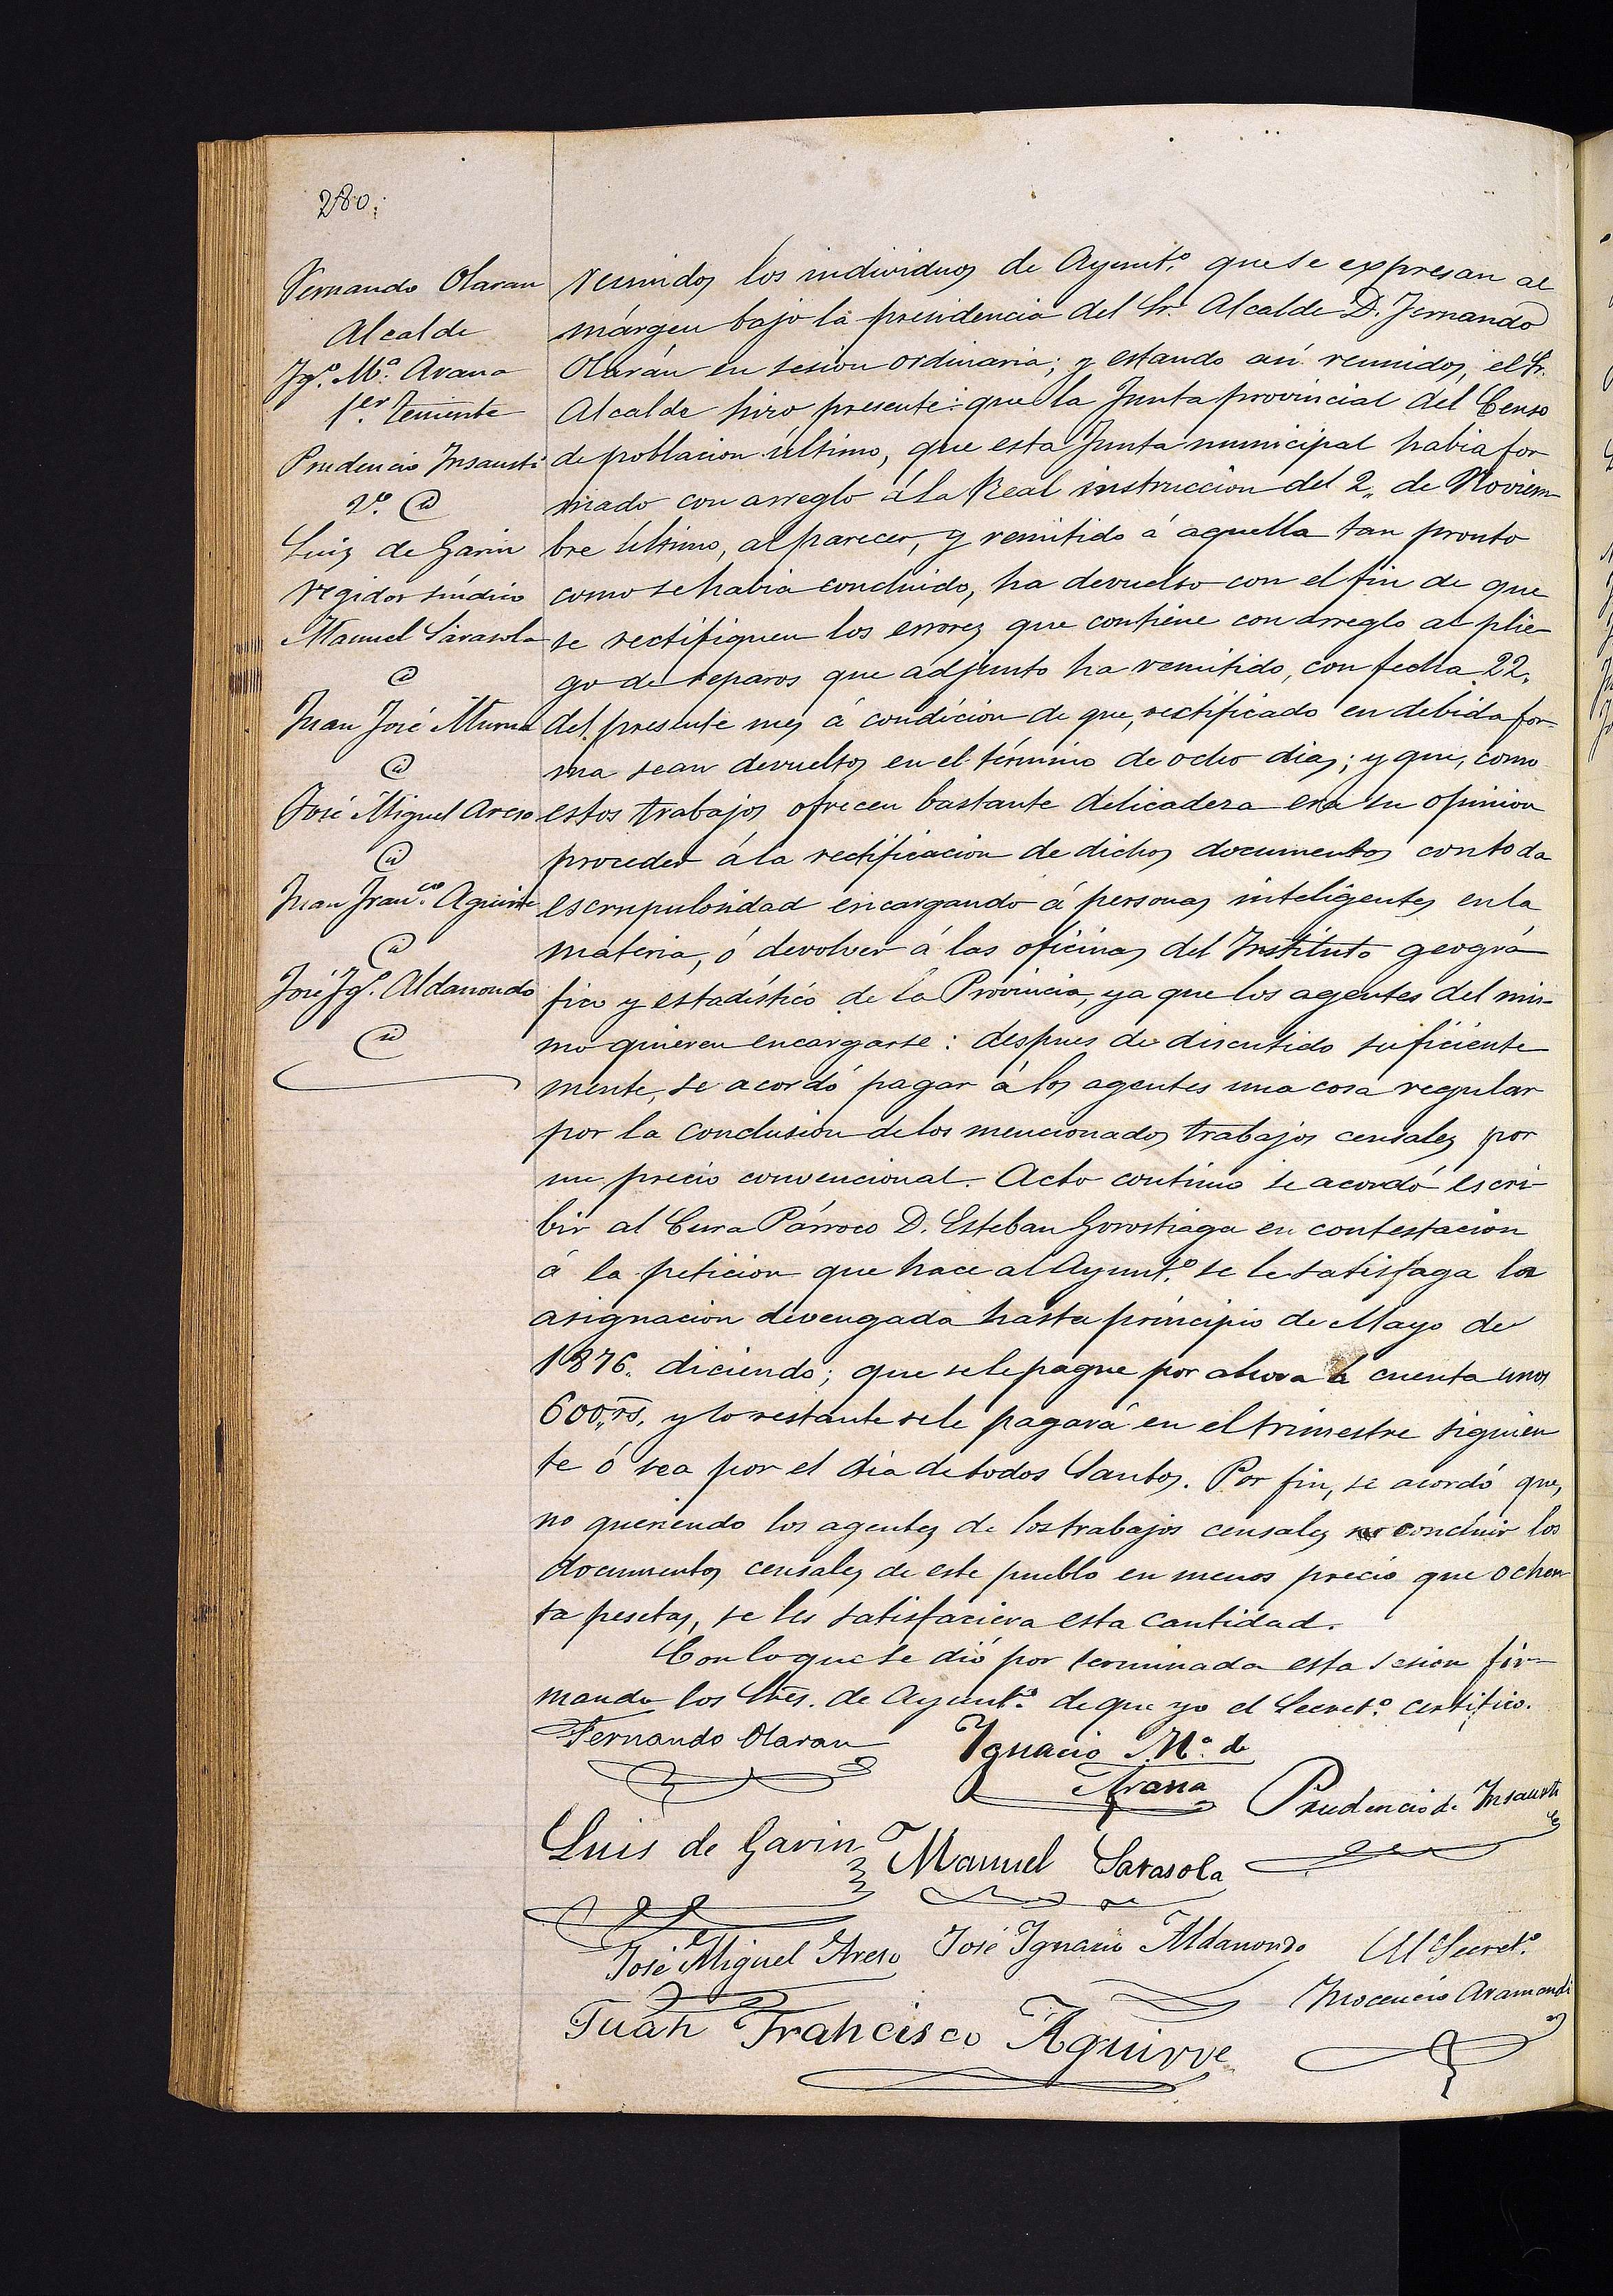 280.
Fernando Olaran
Alcalde
Ygº. Mª. Arana
1er. Teniente
Prudencio Insausti
2º. @
Luis de Garin
regidor síndico
Manuel Sarasola
@
Juan José Iturria
@
José Miguel Areso
@
Juan Franco. Aguirre
@
José Ygº. Aldanondo
@
reunidos los individuos de Ayuntº. que se expresan al
márgen bajo la presidencia del Sr. Alcalde D. Fernando
Olarán en sesion ordinaria; y estando asi reunidos, el Sr.
Alcalde hizo presente: que la Junta provincial del Censo
de poblacion último, que esta Junta municipal habia for
mado con arreglo á la Real instruccion del 2,, de Noviem-
bre último, al parecer, y remitido á aquella tan pronto
como se habia concluido, ha devuelto con el fin de que
se rectifiquen los errores que contiene con arreglo al plie-
go de reparos que adjunto ha remitido, con fecha 22,
del presente mes á condicion de que, rectificado en debida for-
ma sean devueltos en el término de ocho dias; y que, como
estos trabajos ofrecen bastante delicadeza era su opinion
proceder á la rectificacion de dichos documentos con toda
escrupulosidad encargando á personas inteligentes en la
materia, ó devolver á las oficinas del Instituto geográ
fico y estadístico de la Provincia, ya que los agentes del mis-
mo quieren encargarse: despues de discutido suficiente
mente, se acordó pagar á los agentes una cosa regular
por la conclusion de los mencionados trabajos censales por
un precio convencional. Acto contínuo se acordó escri-
bir al Cura Párroco D. Esteban Gorostiaga en contestacion
á la peticion que hace al Ayuntº. se le satisfaga la
asignacion devengada hasta principio de Mayo de
1876. diciendo; que se le pague por ahora á cuenta unos
600,, rs. y lo restante se le pagará en el trimestre siguien
te ó sea por el dia de todos Santos. Por fin, se acordó que,
no queriendo los agentes de los trabajos censales concluir los
documentos censales de este pueblo en menos precio que ochen
ta pesetas, se les satisfaciera esta cantidad.
Con lo que se dió por terminada esta sesion fir-
mando los Sres. de Ayuntº. de que yo el Secretº. certifico.
Fernando Olaran
Ygnacio Mª. de
Arana
Prudencio de Insausti
Luis de Garin
Manuel Sarasola
José Miguel Areso
José Ygnacio Aldanondo
El Secretº.
Inocencio Aramendi
Juan Francisco Aguirre